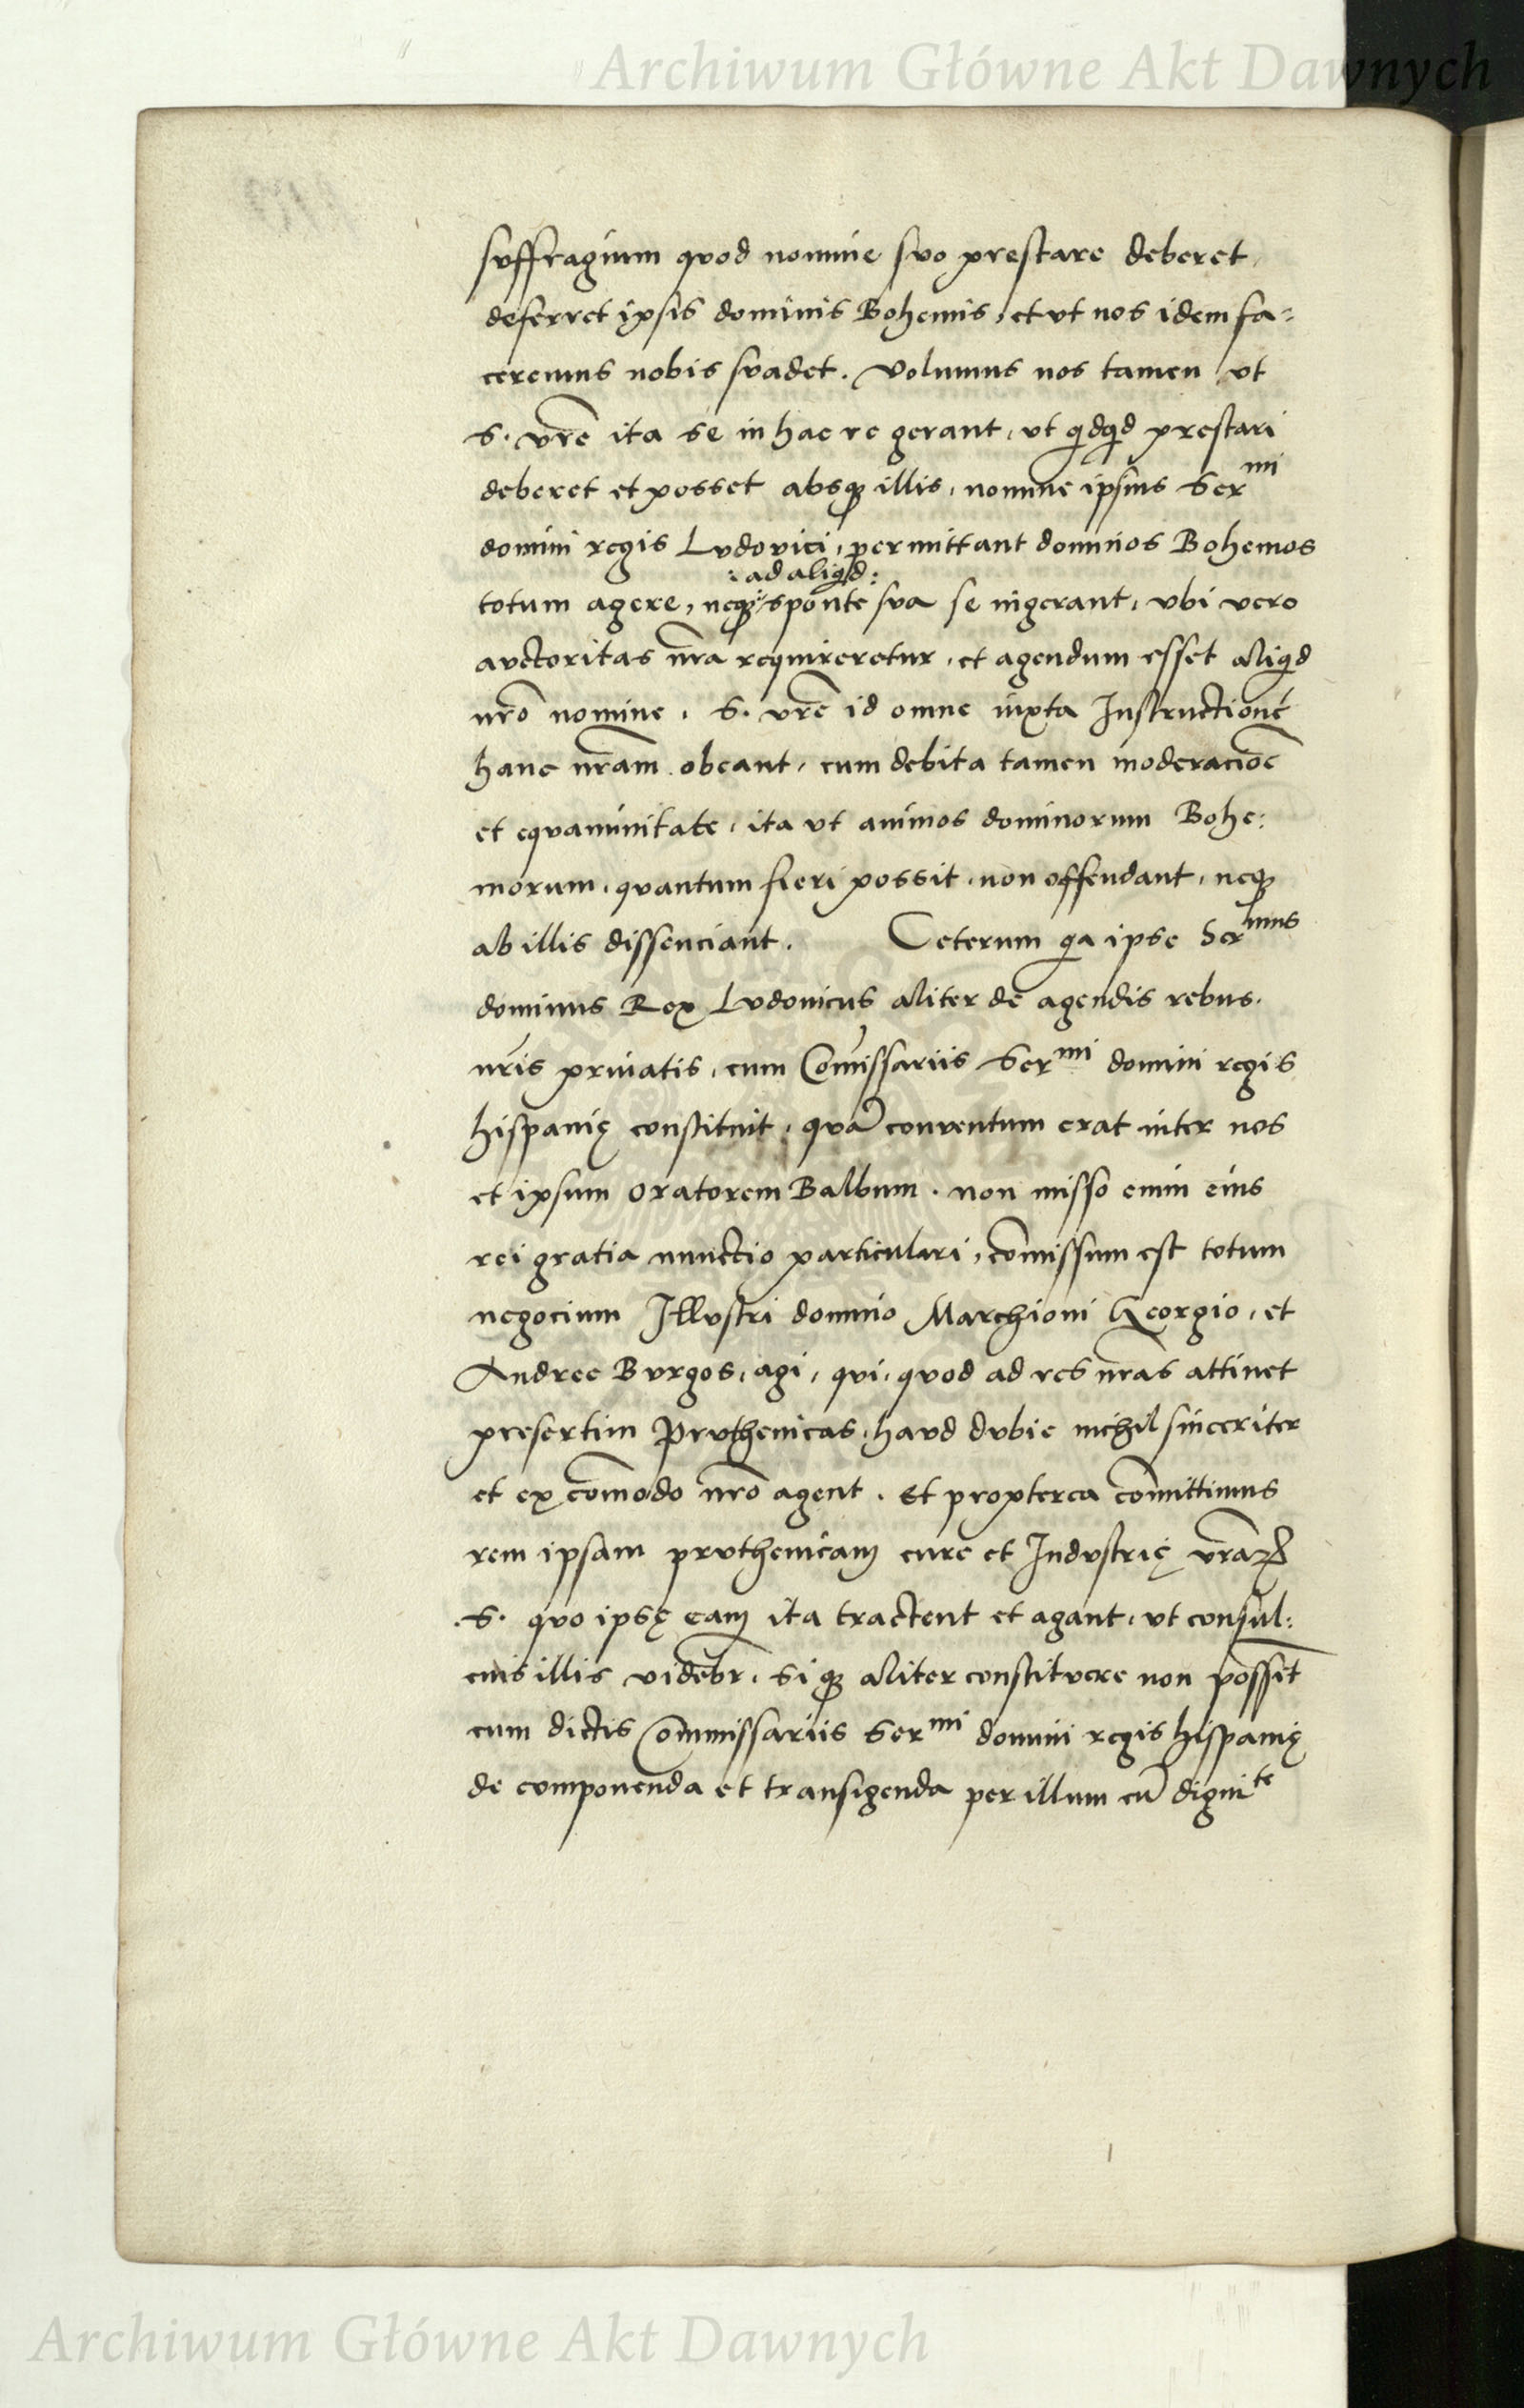 Archiwum Główne Akt Dawnych
suffragium quod nomine suo prestare deberet,
deferret ipsis dominis Bohemis, et ut nos idem fa=
ceremus nobis suadet. Volumus nos tamen ut
S. vr̃e ita se in hac re gerant, ut qdqd prestari
deberet et posset absq illis, nomine ipsius Ser^mi
domini regis Ludovici, permittant dominos Bohemos
:ad aliqd:
totum agere, neq sponte sua se ingerant, ubi vero
auctoritas nr̃a requireretur, et agendum esset aliqd
nr̃o nomine, S. vr̃e id omne iuxta Instructionẽ
hanc nr̃am obeant, cum debita tamen moderaciõe
et equanimitate, ita ut animos dominorum Bohe:
morum, quantum fieri possit, non offendant, neq
ab illis dissenciant. Ceterum qa ipse Ser^mus
dominus Rex Ludovicus aliter de agendis rebus
nr̃is privatis, cum Com̃issariis Ser^mi domini regis
hispanię constituit, quã conventum erat inter nos
et ipsum oratorem Balbum. non misso enim eius
rei gratia nunctio particulari, com̃issum est totum
negocium Illustri domino Marchioni Georgio, et
Andree Burgos, agi, qui, quod ad res nr̃as attinet
presertim Pruthenicas, haud dubie nichil sinceriter
et ex com̃odo nr̃o agent. Et propterea com̃ittimus
rem ipsam pruthenicam cure et Industrię vr̃aꝝ
S. quo ipsę eam ita tractent et agant, ut consul:
cius illis videbr̃. Si q aliter constituere non possent
cum dictis Commissariis Ser^mi domini regis hispanię
de componenda et transigenda per illum cũ digni^te
Archiwum Główne Akt Dawnych